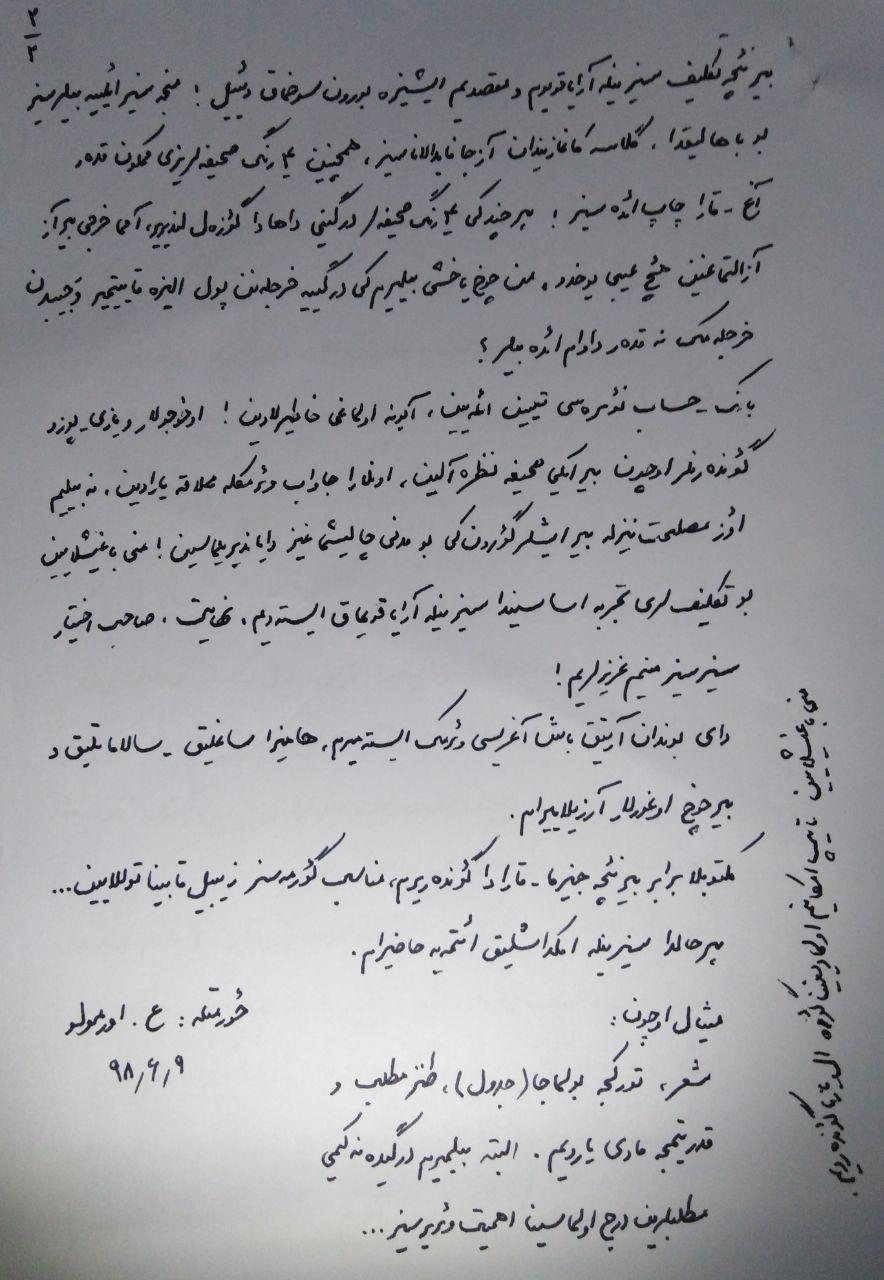 ۲
۲
بیر نئچه تکلیف سیزینله آرایا قویوم و مقصدیم ایشیزه بورون سوخماق دئییل! منجه سیز ائلییه بیلرسیز
بو باهالیقدا، گلاسه کاغازیندان آزجا فایدالاناسیز، همچنین ۴ رنگ صحیفه‌لریزی ممکون قدر
آغ - قارا چاپ ائده‌سیز! هرچند کی ۴ رنگ صحیفه‌لر درگینی داها دا گؤزه‌ل‌لندیریر، آما خرجی بیر آز
آزالتماغین هئچ عیبی یوخدو، من چوخ یاخشی بیلیرم کی درگییه خرجله‌نن پول الیزه قاییتمیر و جیبدن
خرجله‌مک نه قدر داوام ائده بیلر؟
بانک - حساب نؤمره‌سی تعیین ائله‌یین، آبونه اولماغی خاطیرلادین! اوخوجولار و یازی - پوزو
گؤنده‌رنلر اوچون بیر ایکی صحیفه نظره آلین، اونلارا جاواب وئرمکله علاقه یارادین، نه بیلیم
اؤز مصلحت‌نیزله بیر ایشلر گؤرون کی بو مدنی چالیشماغیز دایاندیریلماسین! منی باغیشلایین
بو تکلیف‌لری تجربه اساسیندا سیزینله آرایا قویماق ایسته‌دیم، نهایت، صاحب اختیار
سیزسیز منیم عزیزلریم!
دای بوندان آرتیق باش آغریسی وئرمک ایسته‌میرم، هامیزا ساغلیق - سالاماتلیق و
بیر چوخ اوغورلار آرزیلاییرام.
مکتوبلا برابر بیر نئچه جیزما - قارا دا گؤنده‌ریرم، مناسب گؤرمه‌سز زیبیل قابینا توللایین...
هر حالدا سیزینله امکداشلیق ائتمه‌یه حاضیرام.
میثال اوچون:
شعر، تورکجه بولماجا (جدول)، طنز مطلب و
قدر یتمجه مادی یاردیم. البته بیلمیرم درگیده نه کیمی
مطلبلرین درج اولماسینا اهمیت وئریرسیز...
حؤرمتله: ع. اورمولو
۹۸/۶/۹
منی باغیشلایین تایپ امکانیم اولمادیغینا گؤره ال یازما گؤنده‌ردیم.